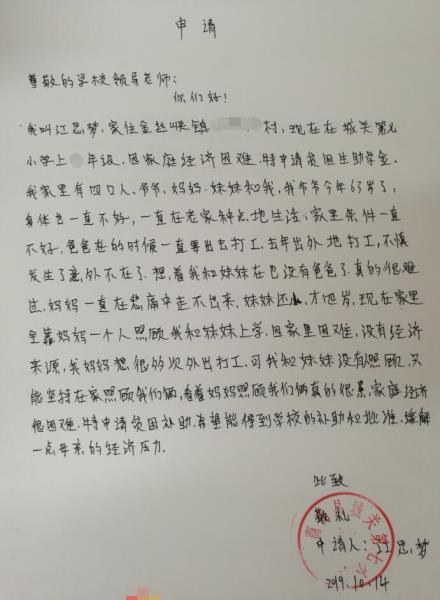 申请
尊敬的学校领导老师:
你们好!
我叫江思梦,家住金丝峡镇 村,现在在城关第七
小学上 年级,因家庭经济困难,特申请贫困生助学金.
我家里有四口人,爷爷,妈妈.妹妹和我,我爷爷今年63岁了,
身体也一直不好,一直在老家种点地生活;家里条件一直
不好,爸爸在的时候一直要出去打工,去年出外地打工,不慎
发生了意外不在了.想,着我和妹妹在也没有爸爸了.真的很难
过.妈妈一直在悲痛中走不出来,妹妹还小,才 岁,现在家里
全靠妈妈一个人照顾我和妹妹上学.因家里困难,没有经济
来源,我妈妈想很多次外出打工.可我和妹妹没有人照顾.只
能坚持在家照顾我们俩,看着妈妈照顾我们俩真的很累,家庭经济
很困难.特申请贫困补助,希望能得到学校的补助和批准.缓解
一点母亲的经济压力.
此致
敬礼
申请人:江思梦
2019.10.14
县城关第七小